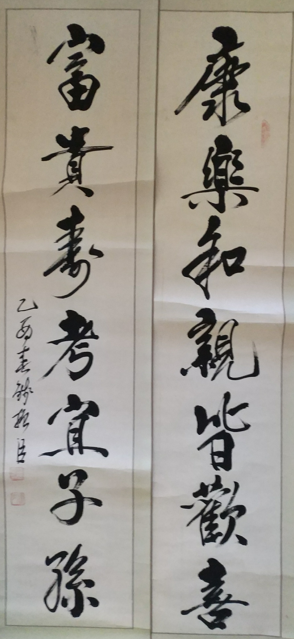 康樂和親皆歡喜
富貴壽考宜子孫
乙酉春